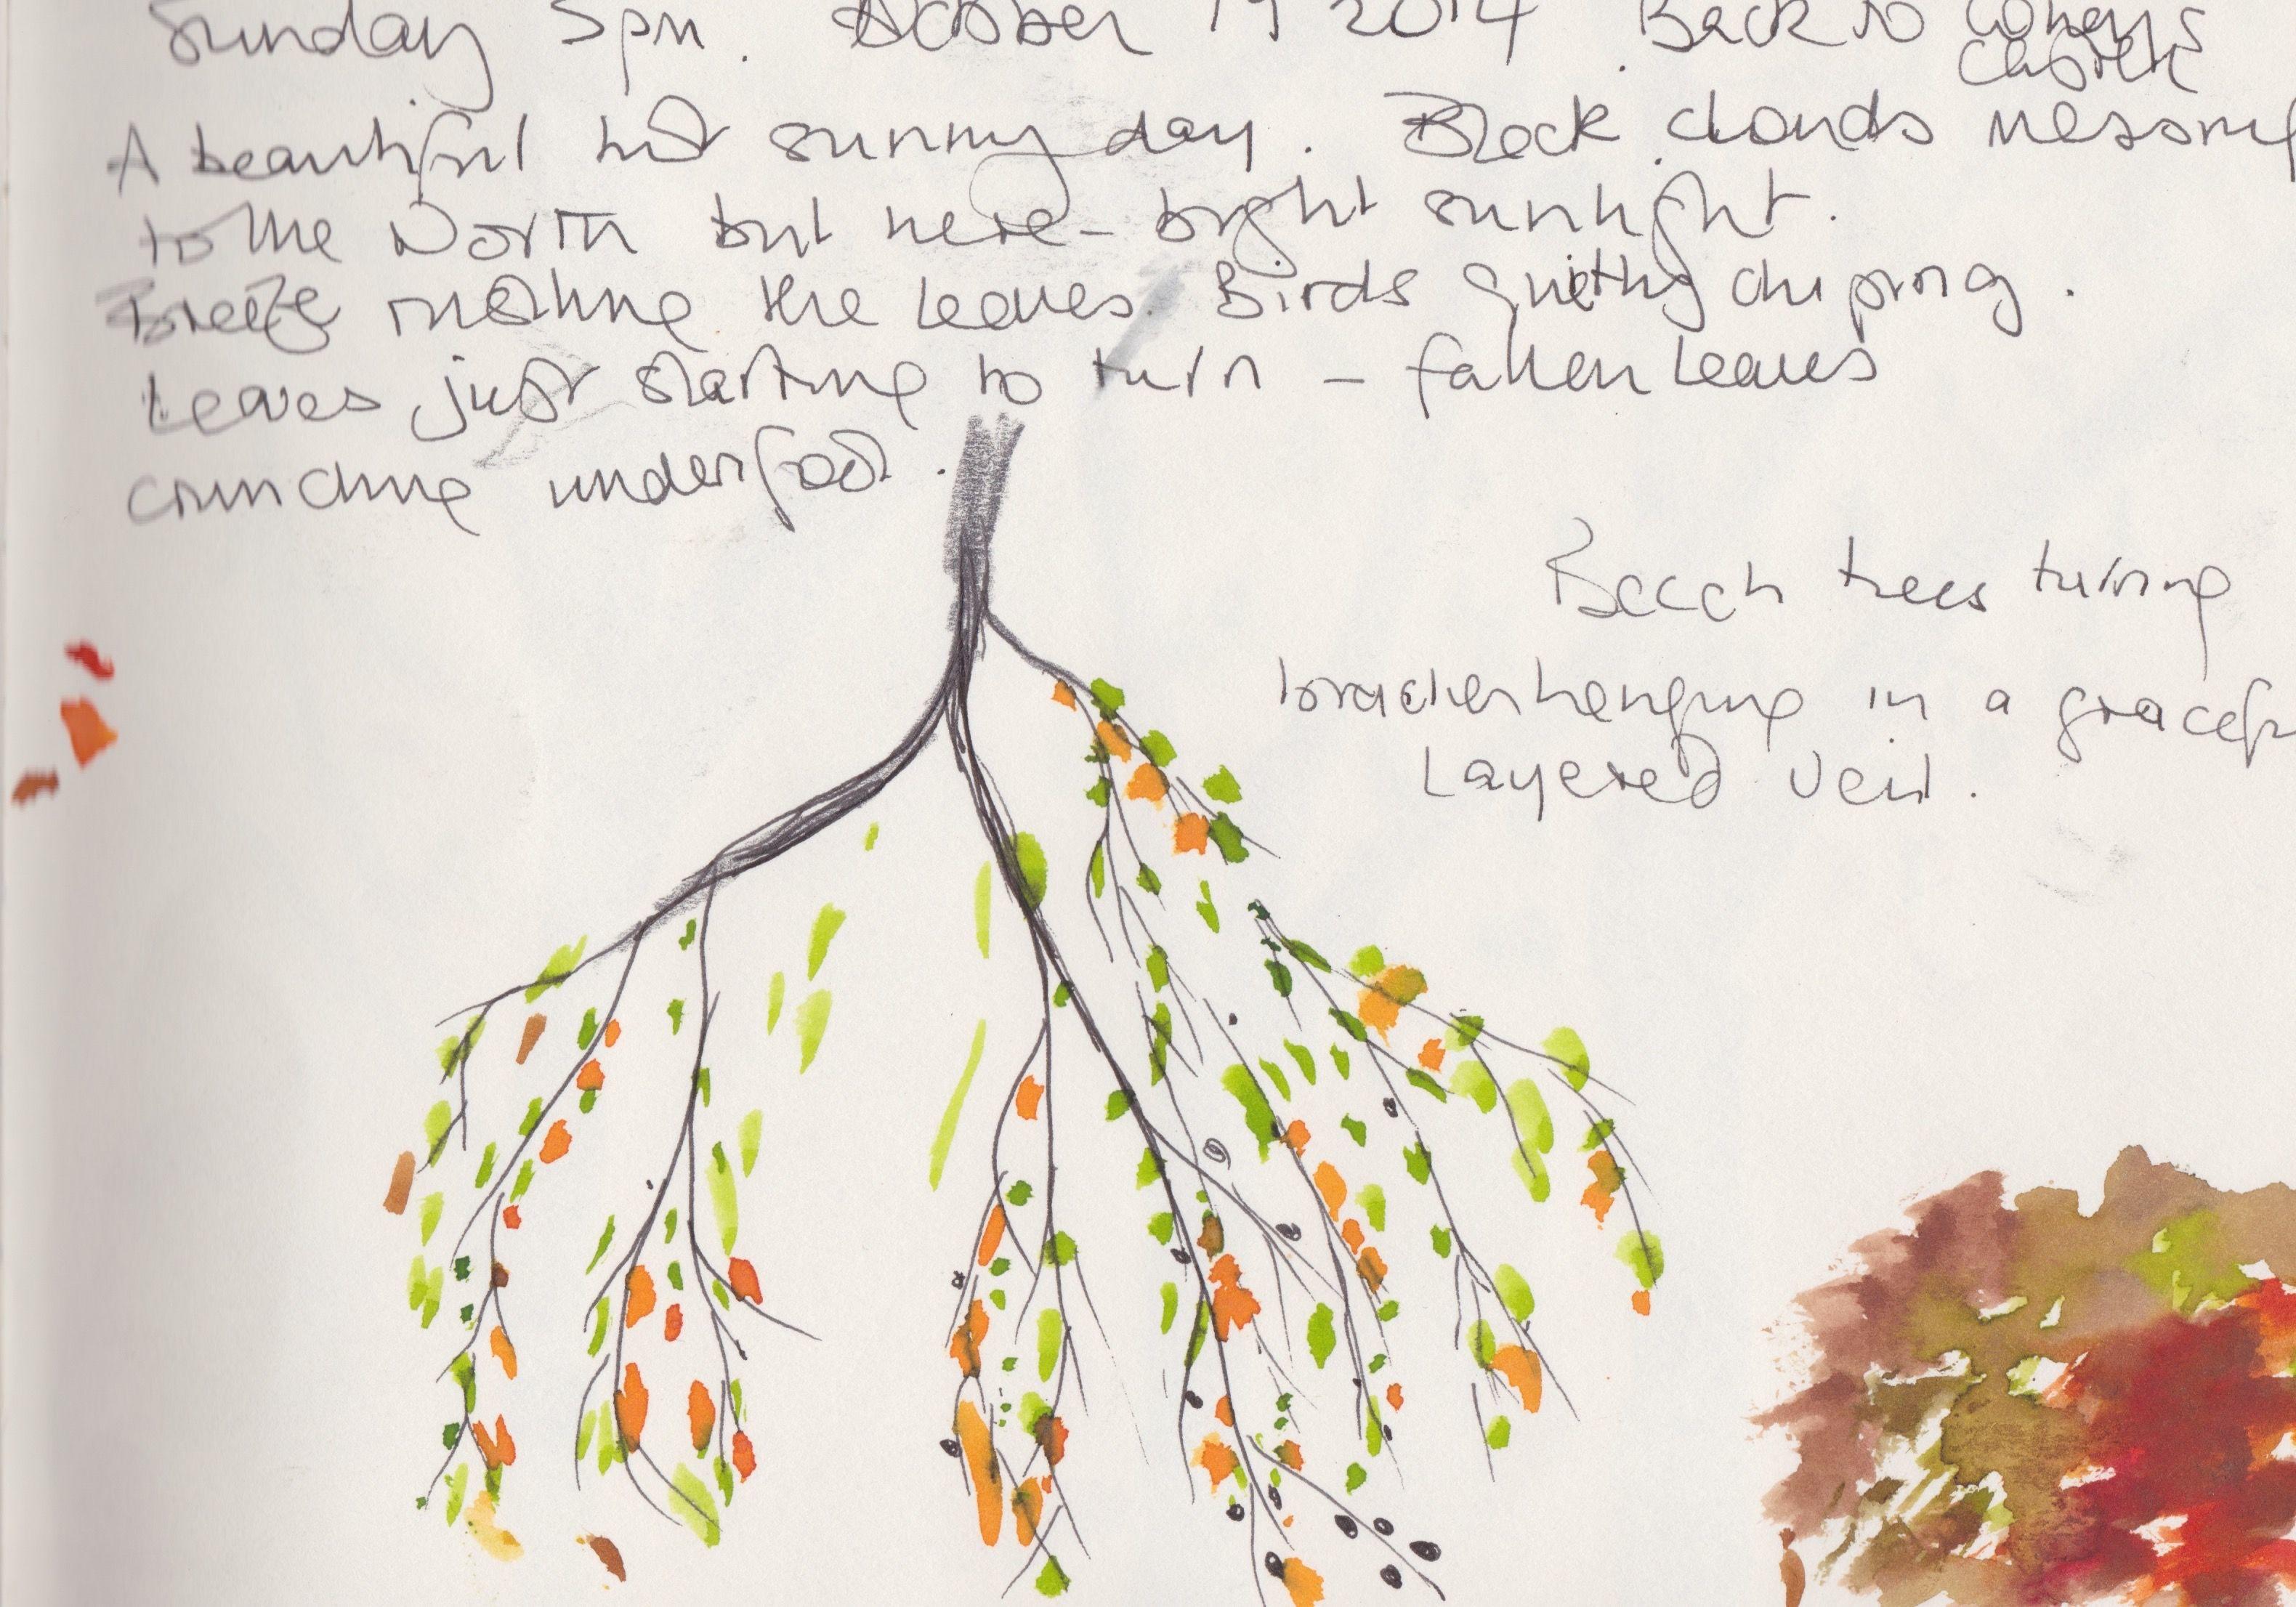 Sunday 5pm. October 19 2014. Back to Conways
Castle
A beautiful hot sunny day. Black clouds
to the North but here - bright sunlight.
Breeze rustling the leaves. Birds quietly chirping.
Leaves just starting to turn - fallen leaves
crunching underfoot.
Beech trees turning
braches hanging in a gracef
Layered veil.